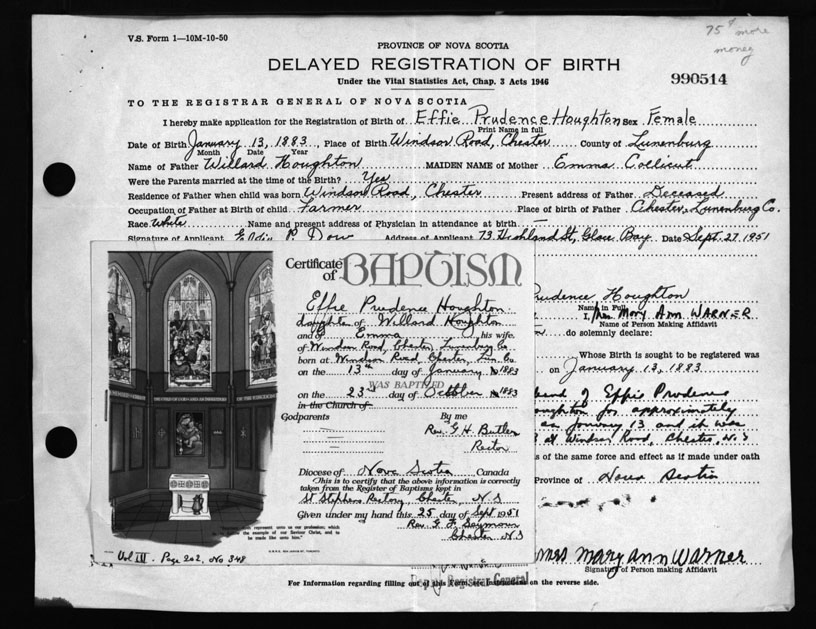 75¢ more
money
V.S. Form 1—10M-10-50
PROVINCE OF NOVA SCOTIA
DELAYED REGISTRATION OF BIRTH
Under the Vital Statistics Act, Chap. 3 Acts 1946
990514
TO THE REGISTRAR GENERAL OF NOVA SCOTIA
I hereby make application for the Registration of Birth of Effie Prudence Houghton Sex Female
Print Name in full
Date of Birth January 13, 1883, Place of Birth Windsor Road, Chester County of Lunenburg
Month Date Year
Name of Father Willard Houghton MAIDEN NAME of Mother Emma Collicut
Were the Parents married at the time of the Birth? Yes
Residence of Father when child was born Windsor Road, Chester Present address of Father Deceased
Occupation of Father at Birth of child Farmer Place of birth of Father Chester, Lunenburg Co.
Race White Name and present address of Physician in attendance at birth —
Signature of Applicant Effie P. Dow Address of Applicant 73 Highland St, Glace Bay Date Sept. 27 1951
Certificate of BAPTISM
Effie Prudence Houghton
daughter of Willard Houghton
and of Emma his wife.
of Windsor Road, Chester, Lunenburg Co
born at Windsor Road, Chester, Lun. Co
on the 13th day of January 1883
WAS BAPTIZED
on the 23rd day of October 1883
in the Church of
Godparents
By me
Rev. G. H. Butler
Rector
Diocese of Nova Scotia, Canada
This is to certify that the above information is correctly
taken from the Register of Baptisms kept in
St Stephens Rectory, Chester, N.S
Given under my hand this 25 day of Sept 1951
Rev. G. F. Seymour
Chester N.S
represent unto us our profession; which
is the example of our Saviour Christ, and to
be made like unto him."
Vol III - Page 202, No 348
Prudence Houghton
Name in Full
I, Mrs Mary Ann WARNER
Name of Person Making Affidavit
do solemnly declare:
Whose Birth is sought to be registered was
on January 13, 1883
of Effie Prudence
Houghton for approximately
as January 13 and it was
at Windsor Road, Chester, N.S
s of the same force and effect as if made under oath
Province of Nova Scotia
Mrs Mary Ann Warner
Signature of Person making Affidavit
Deputy Registrar General
For Information regarding filling out of this Form see instructions on the reverse side.